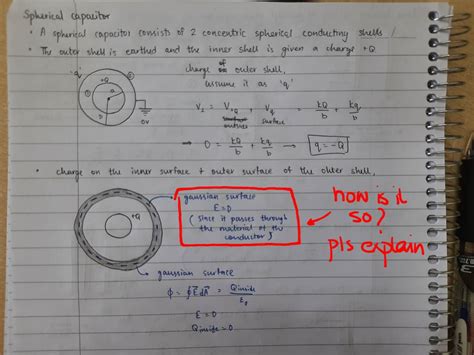 Spherical capacitor
• A spherical capacitor consists of 2 concentric spherical conducting shells
• The outer shell is earthed and the inner shell is given a charge +Q
'q'
charge of on outer shell,
assume it as 'q'
a
b
0V
V₂ = V+Q + Vq = kQ/b + kq/b
outside surface
→ 0 = kQ/b + kq/b → q = -Q
• charge on the inner surface & outer surface of the outer shell,
gaussian surface
E=0
(since it passes through
the material of the
conductor)
how is it
so?
pls explain
gaussian surface
ϕ = ∮E⃗dA⃗ = Qinside/ε₀
E=0
Qinside=0